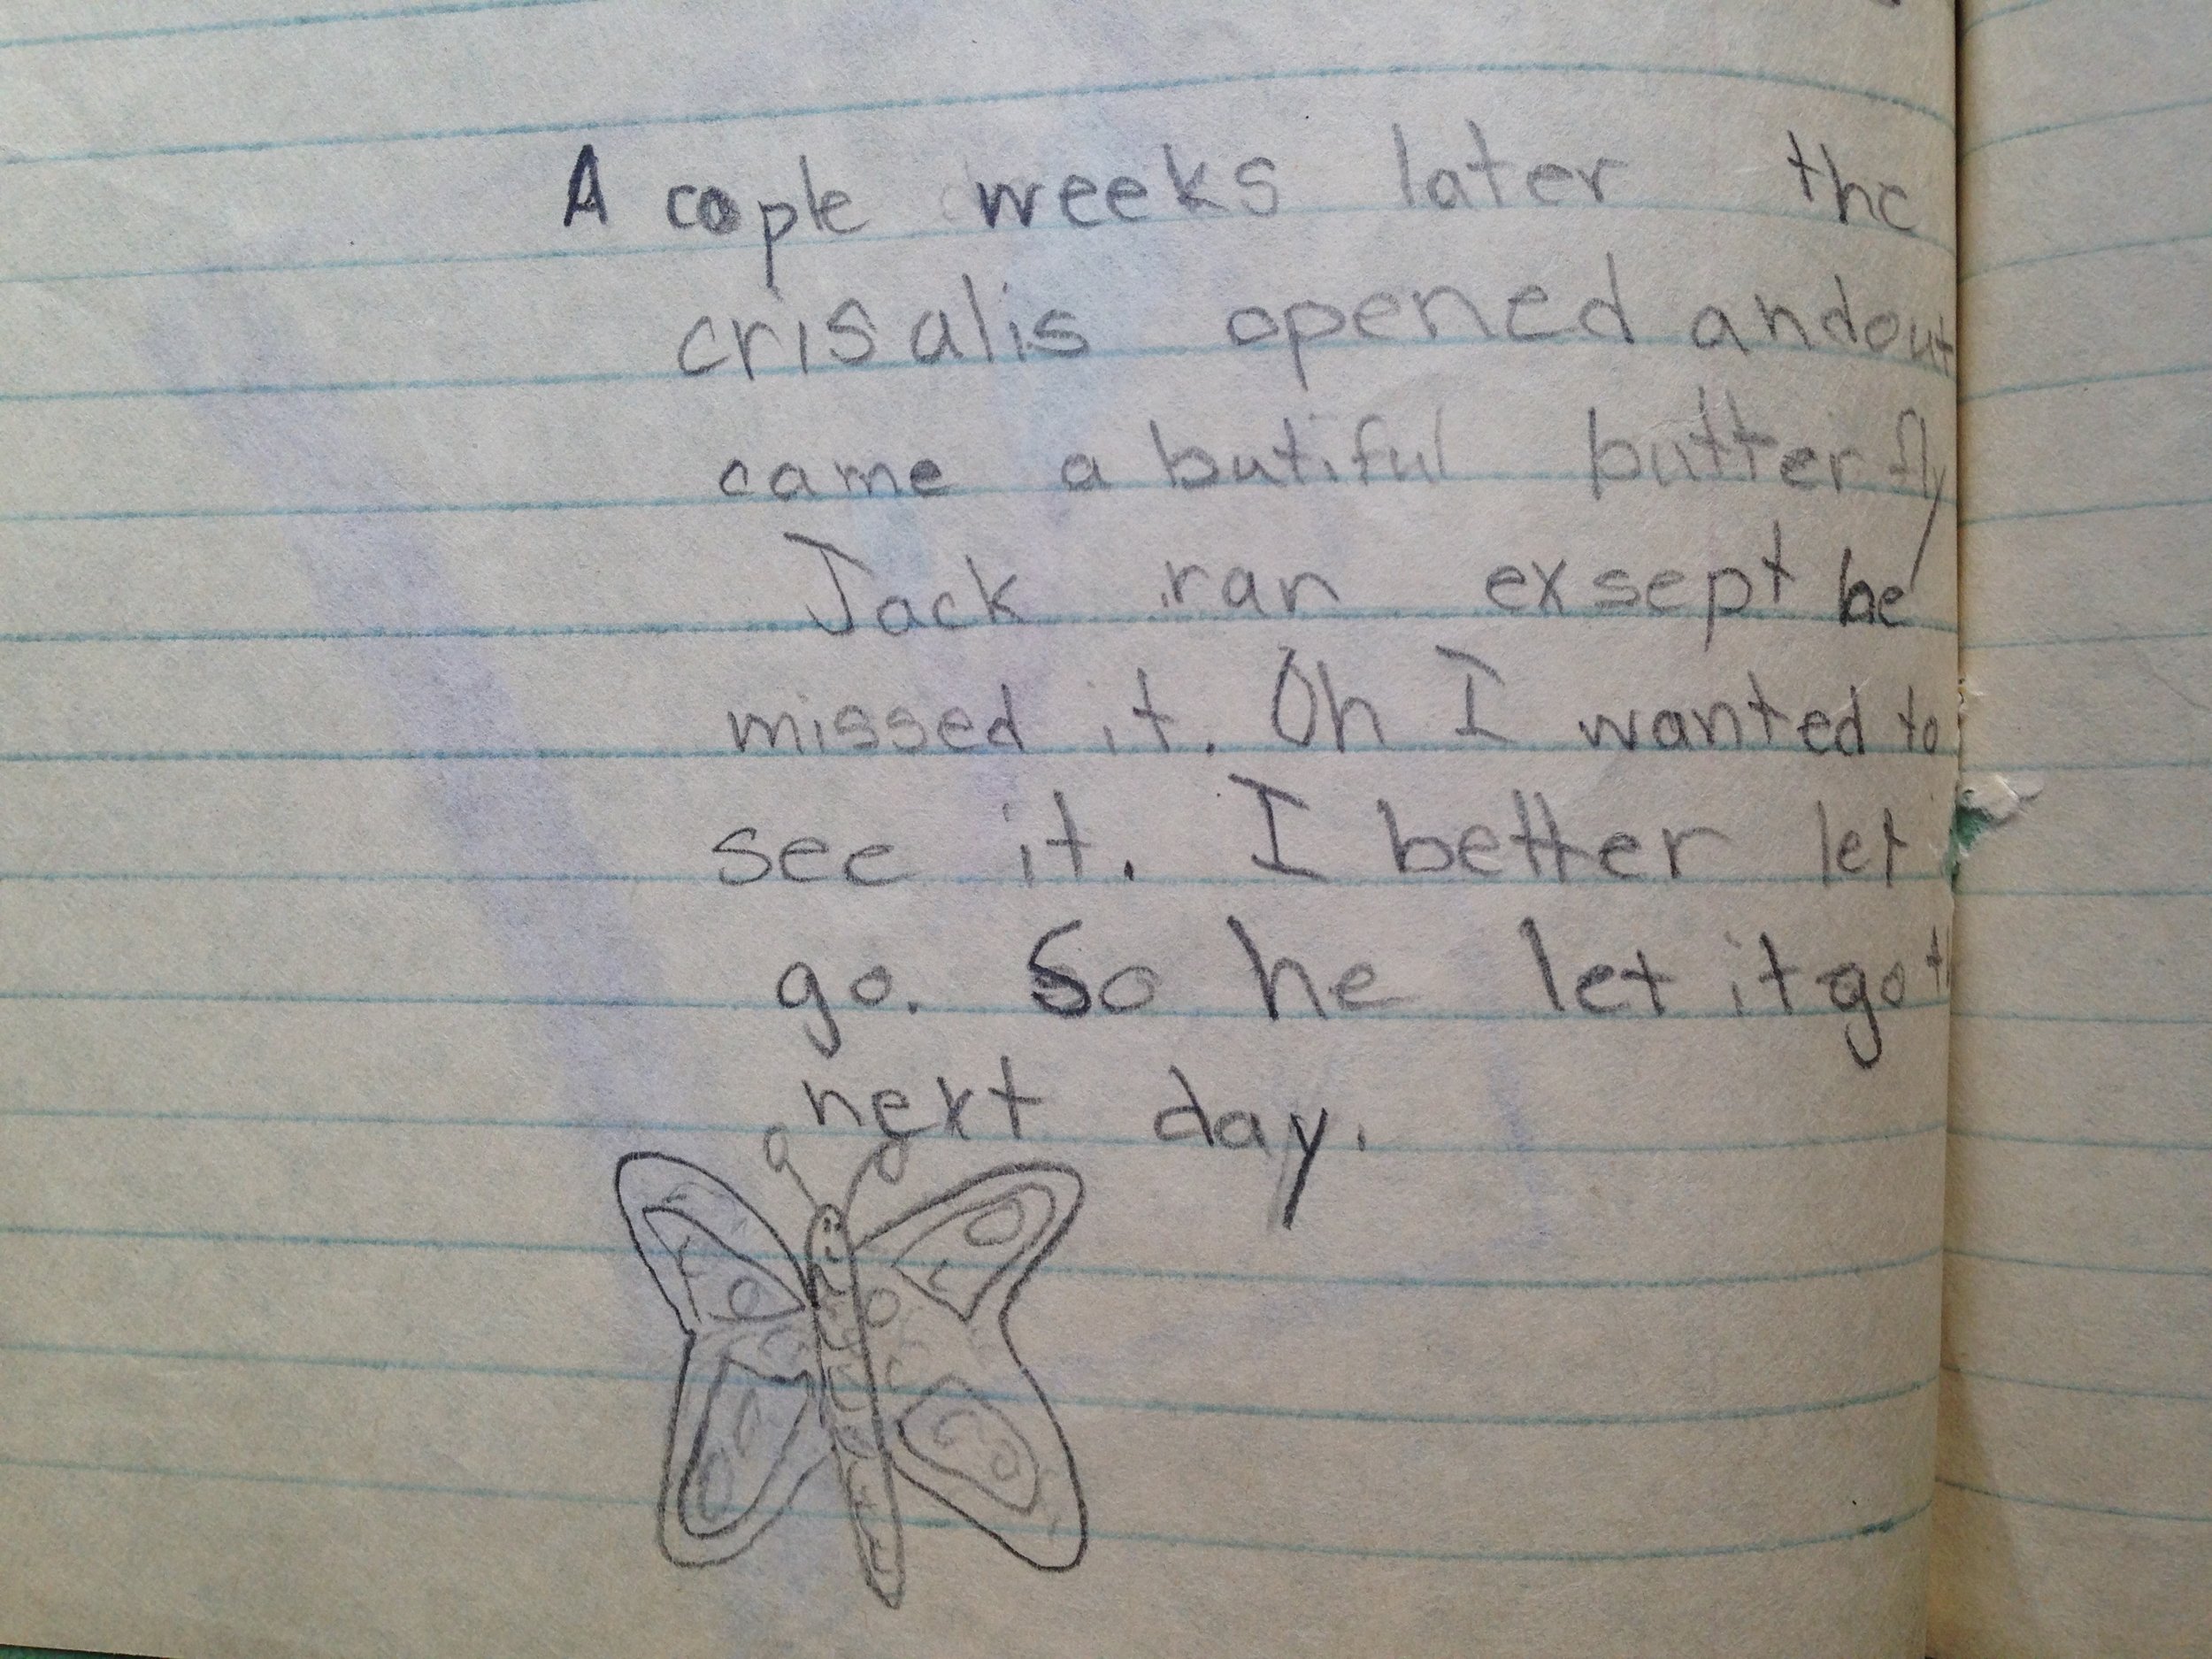 A cople weeks later the
crisalis opened and out
came a butiful butterfly
Jack ran exsept he
missed it. Oh I wanted to
see it. I better let
go. So he let it go
next day.